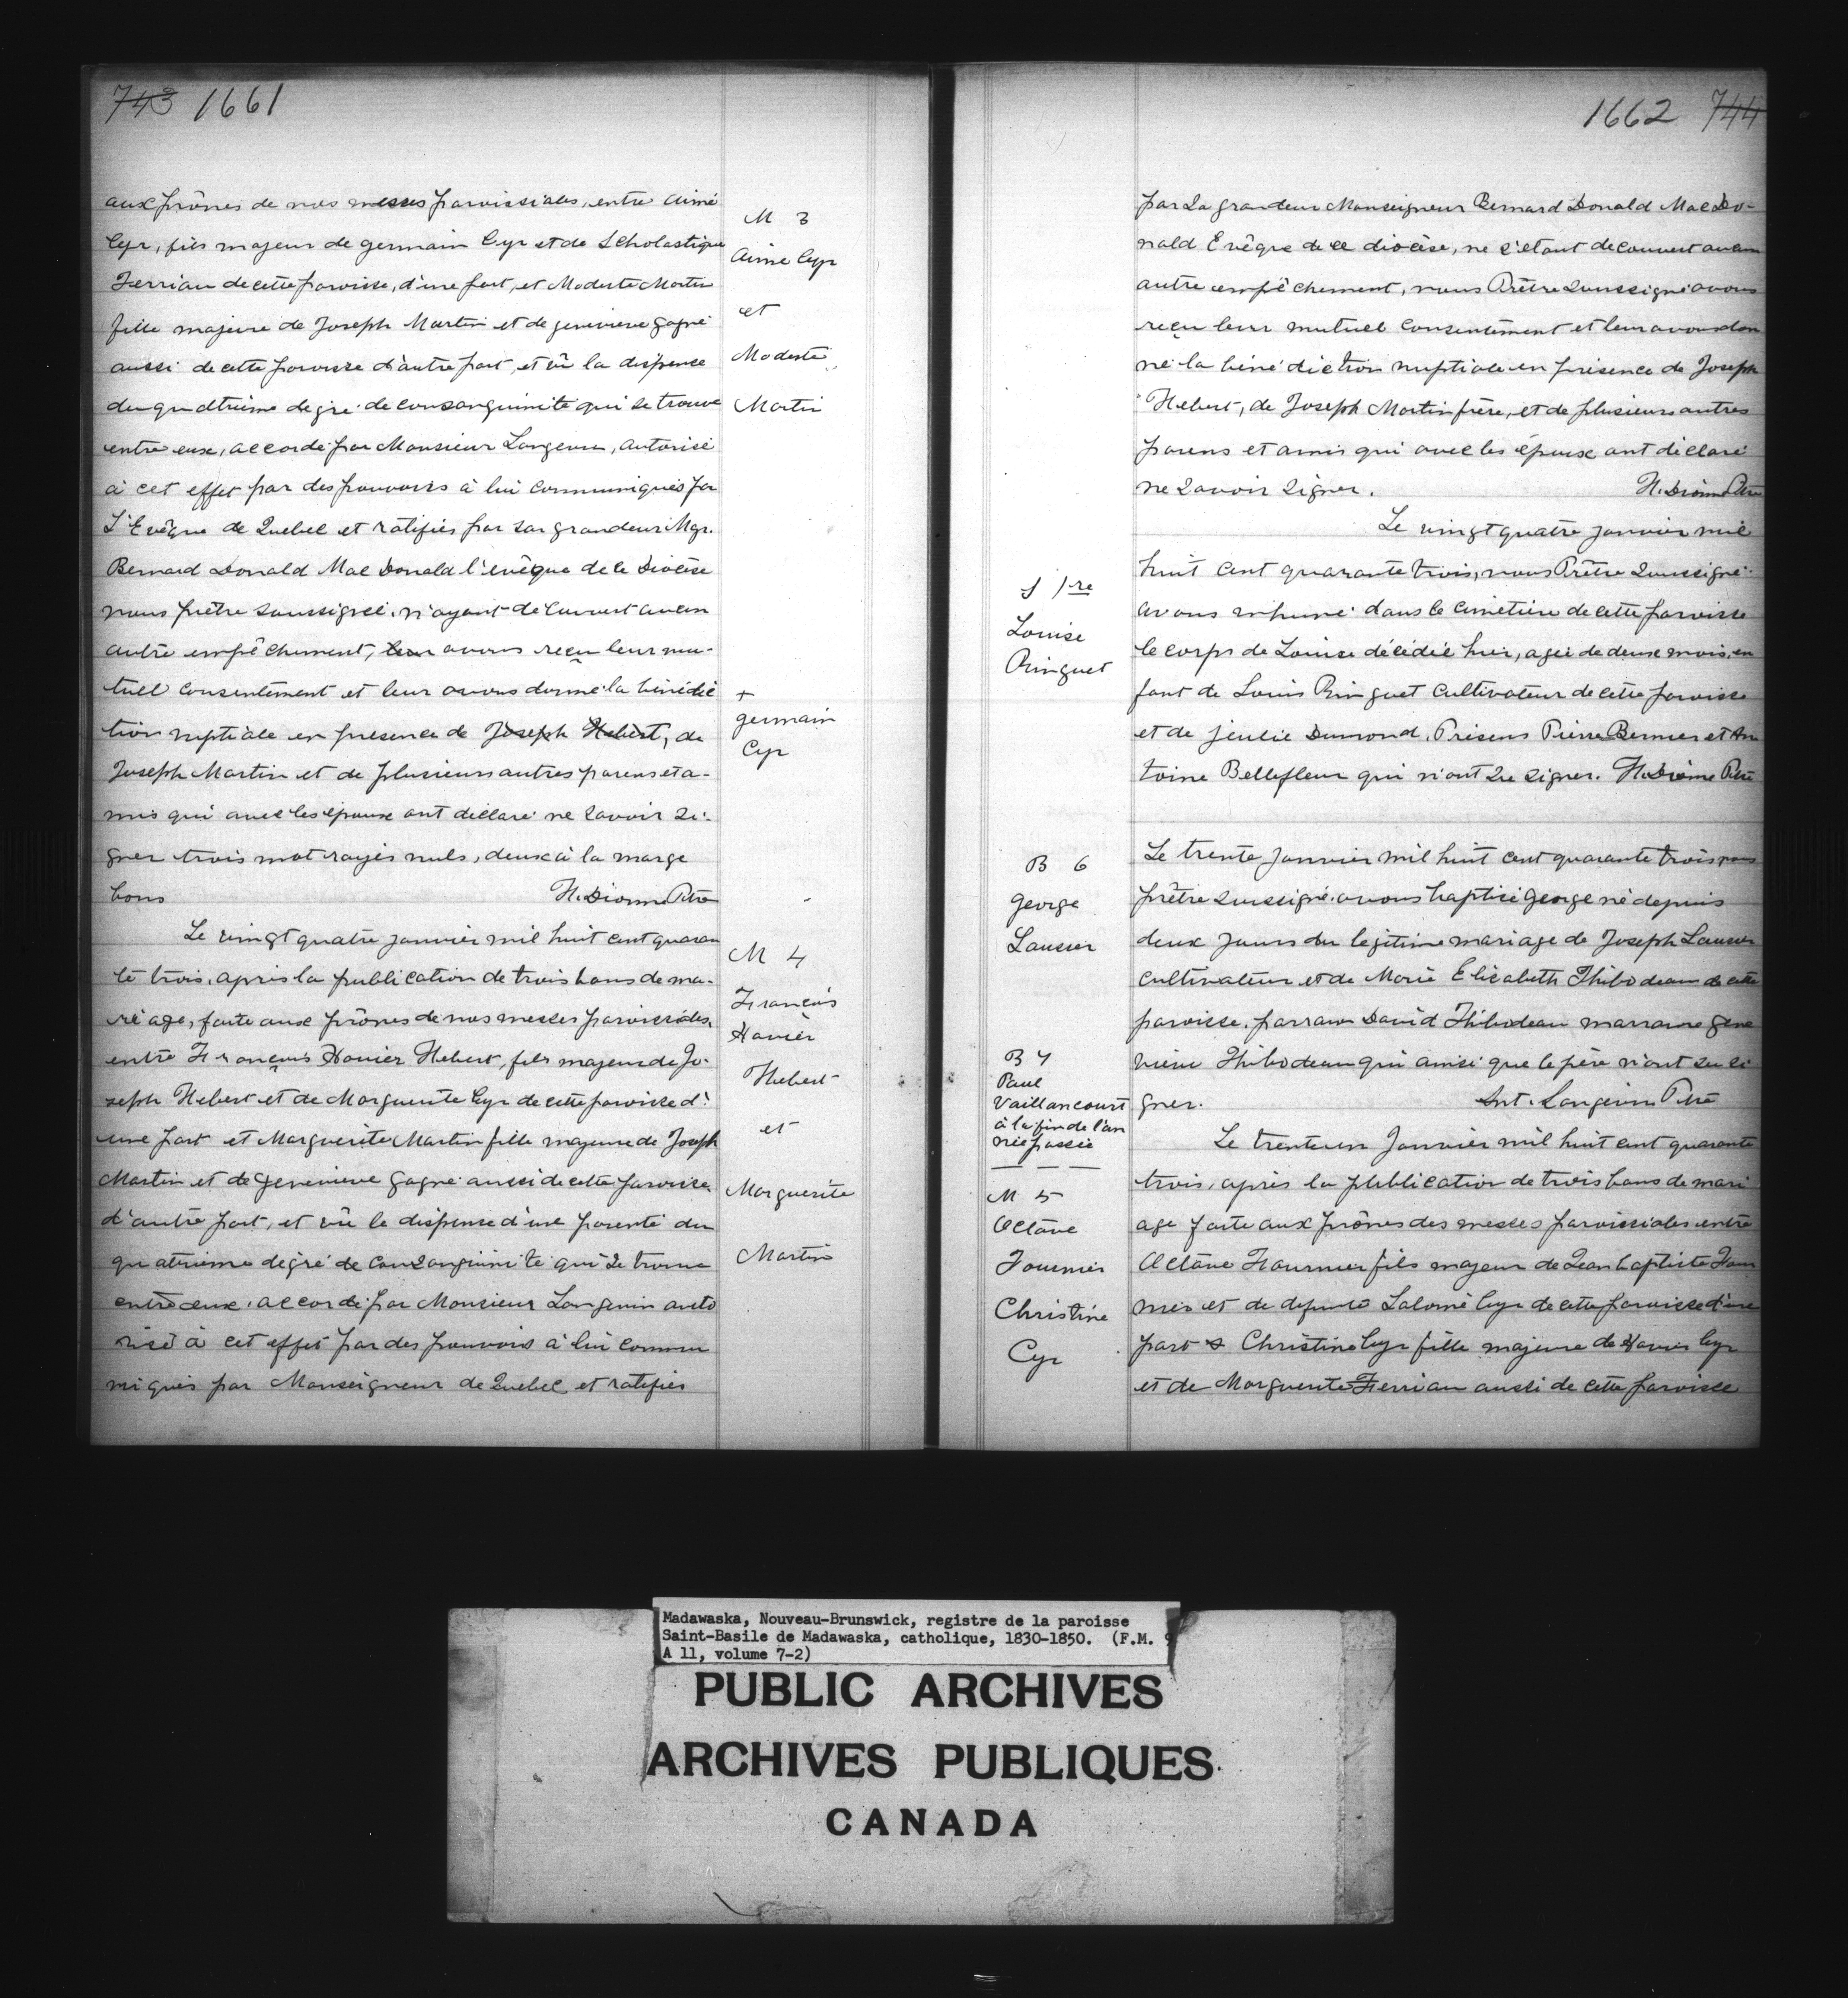 743 1661
aux prônes de nos messes paroissiales, entre Aimé
Cyr, fils majeur de germain Cyr et de Scholastique
Terriau de cette paroisse, d'une part, et Modeste Martin
fille majeure de Joseph Martin et de genevieve gagné
aussi de cette paroisse d'autre part, et vû la dispense
du quatrième degré de consanguinité qui se trouve
entre eux, accordé par Monsieur Langevin, autorisé
à cet effet par des pouvoirs à lui communiqués par
L'Evêque de Quebec et ratifiés par sa grandeur Mgr.
Bernard Donald Mac Donald l'evêque de ce Diocèse
nous prêtre soussigné, n'ayant découvert aucun
autre empêchement, leur avons reçu leur mu-
tuel consentement et leur avons donné la bénédic
tion nuptiale en presence de Joseph Hebert, de
Joseph Martin et de plusieurs autres parens et a-
mis qui avec les époux ont déclaré ne savoir si-
gner trois mot rayés nuls, deux à la marge
bons H. Dionne Ptre
Le vingt quatre janvier mil huit cent quaran
te trois, après la publication de trois bans de ma-
riage, faite aux prônes de nos messes paroissiales,
entre François Xavier Hebert, fils majeur de Jo-
seph Hebert et de Marguerite Cyr de cette paroisse d'
une part et Marguerite Martin fille majeure de Joseph
Martin et de Genevieve Gagné aussi de cette paroisse
d'autre part, et vû la dispense d'une parenté du
quatrième dégré de consanguinité qui se trouve
entre eux, accordé par Monsieur Langevin auto
risé à cet effet par des pouvoirs à lui commu
niqués par Monseigneur de Quebec et ratifiés
M 3
Aimé Cyr
et
Modeste
Martin
+
germain
Cyr
M 4
François
Xavier
Hebert
et
Marguerite
Martin
1662 744
par Sa grandeur Monseigneur Bernard Donald MacDo-
nald Evêque de ce diocèse, ne s'étant découvert aucun
autre empêchement, nous Prêtre soussigné avons
reçu leur mutuel consentement et leur avons don
né la bénédiction nuptiale en présence de Joseph
Hebert, de Joseph Martin frère, et de plusieurs autres
parens et amis qui avec les époux ont déclaré
ne savoir signer. H. Dionne Ptre
Le vingt quatre janvier mil
huit cent quarante trois, nous Prêtre soussigné
avons inhumé dans le cimetière de cette paroisse
le corps de Louise décédée hier, agée de deux mois, en
fant de Louis Ringuet cultivateur de cette paroisse
et de Dumond. Présens Pierre Bernier et An
toine Bellefleur qui n'ont su signer. H. Dionne Ptre
Le trente janvier mil huit cent quarante trois nous
prêtre soussigné, avons baptisé George né depuis
deux jours du legitime mariage de Joseph Lausier
cultivateur et de Marie Elisabeth Thibodeau de cette
paroisse, parrain David Thibodeau marraine gene
viève Thibodeau qui ainsi que le père n'ont su si
gner. Ant. Langevin Ptre
Le trente un Janvier mil huit cent quarante
trois, après la publication de trois bans de mari
age faite aux prônes des messes paroissiales entre
Octâve Fournier fils majeur de Jean baptiste Four
nier et de defunte Salomé Cyr de cette paroisse d'une
part & Christine Cyr fille majeure de Xavier Cyr
et de Marguerite Terriau aussi de cette paroisse
S 1re
Louise
Ringuet
B 6
George
Lausier
B 7
Paul
Vaillancourt
à la fin de l'an
née passée
M 5
Octâve
Fournier
Christine
Cyr
Madawaska, Nouveau-Brunswick, registre de la paroisse
Saint-Basile de Madawaska, catholique, 1830-1850. (F.M. 9
A 11, volume 7-2)
PUBLIC ARCHIVES
ARCHIVES PUBLIQUES
CANADA